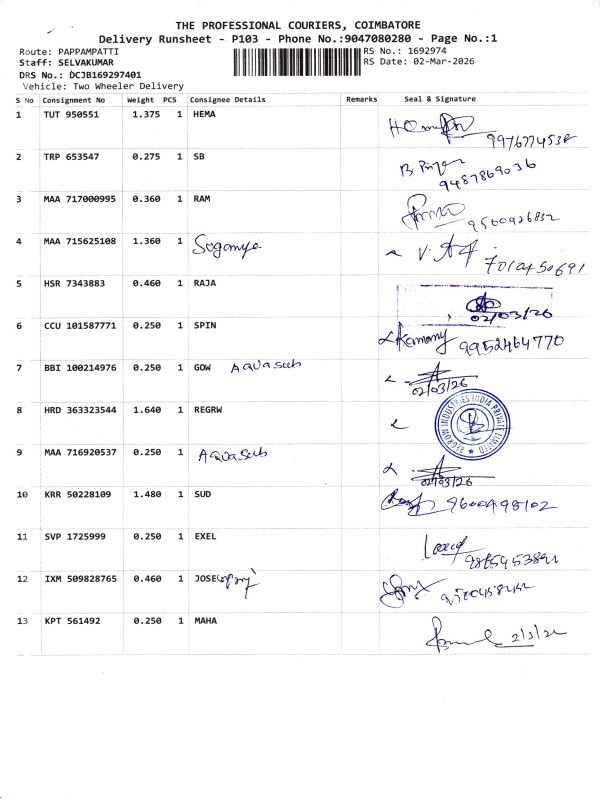 THE PROFESSIONAL COURIERS, COIMBATORE
Delivery Runsheet - P103 - Phone No.:9047080280 - Page No.:1
Route: PAPPAMPATTI RS No.: 1692974
Staff: SELVAKUMAR RS Date: 02-Mar-2026
DRS No.: DCJB169297401
Vehicle: Two Wheeler Delivery
S No Consignment No Weight PCS Consignee Details Remarks Seal & Signature
1 TUT 950551 1.375 1 HEMA
2 TRP 653547 0.275 1 SB
9487869036
3 MAA 717000995 0.360 1 RAM
9500926832
4 MAA 715625108 1.360 1 Suganya
7010450691
5 HSR 7343883 0.460 1 RAJA
02/03/26
6 CCU 101587771 0.250 1 SPIN
9952464770
7 BBI 100214976 0.250 1 GOW Aqua sub
02/03/26
8 HRD 363323544 1.640 1 REGRW
REGROW INDUSTRIES INDIA PRIVATE LIMITED
9 MAA 716920537 0.250 1 Aqua sub
02/03/26
10 KRR 50228109 1.480 1 SUD
9600498102
11 SVP 1725999 0.250 1 EXEL
12 IXM 509828765 0.460 1 JOSE
13 KPT 561492 0.250 1 MAHA
2/3/26